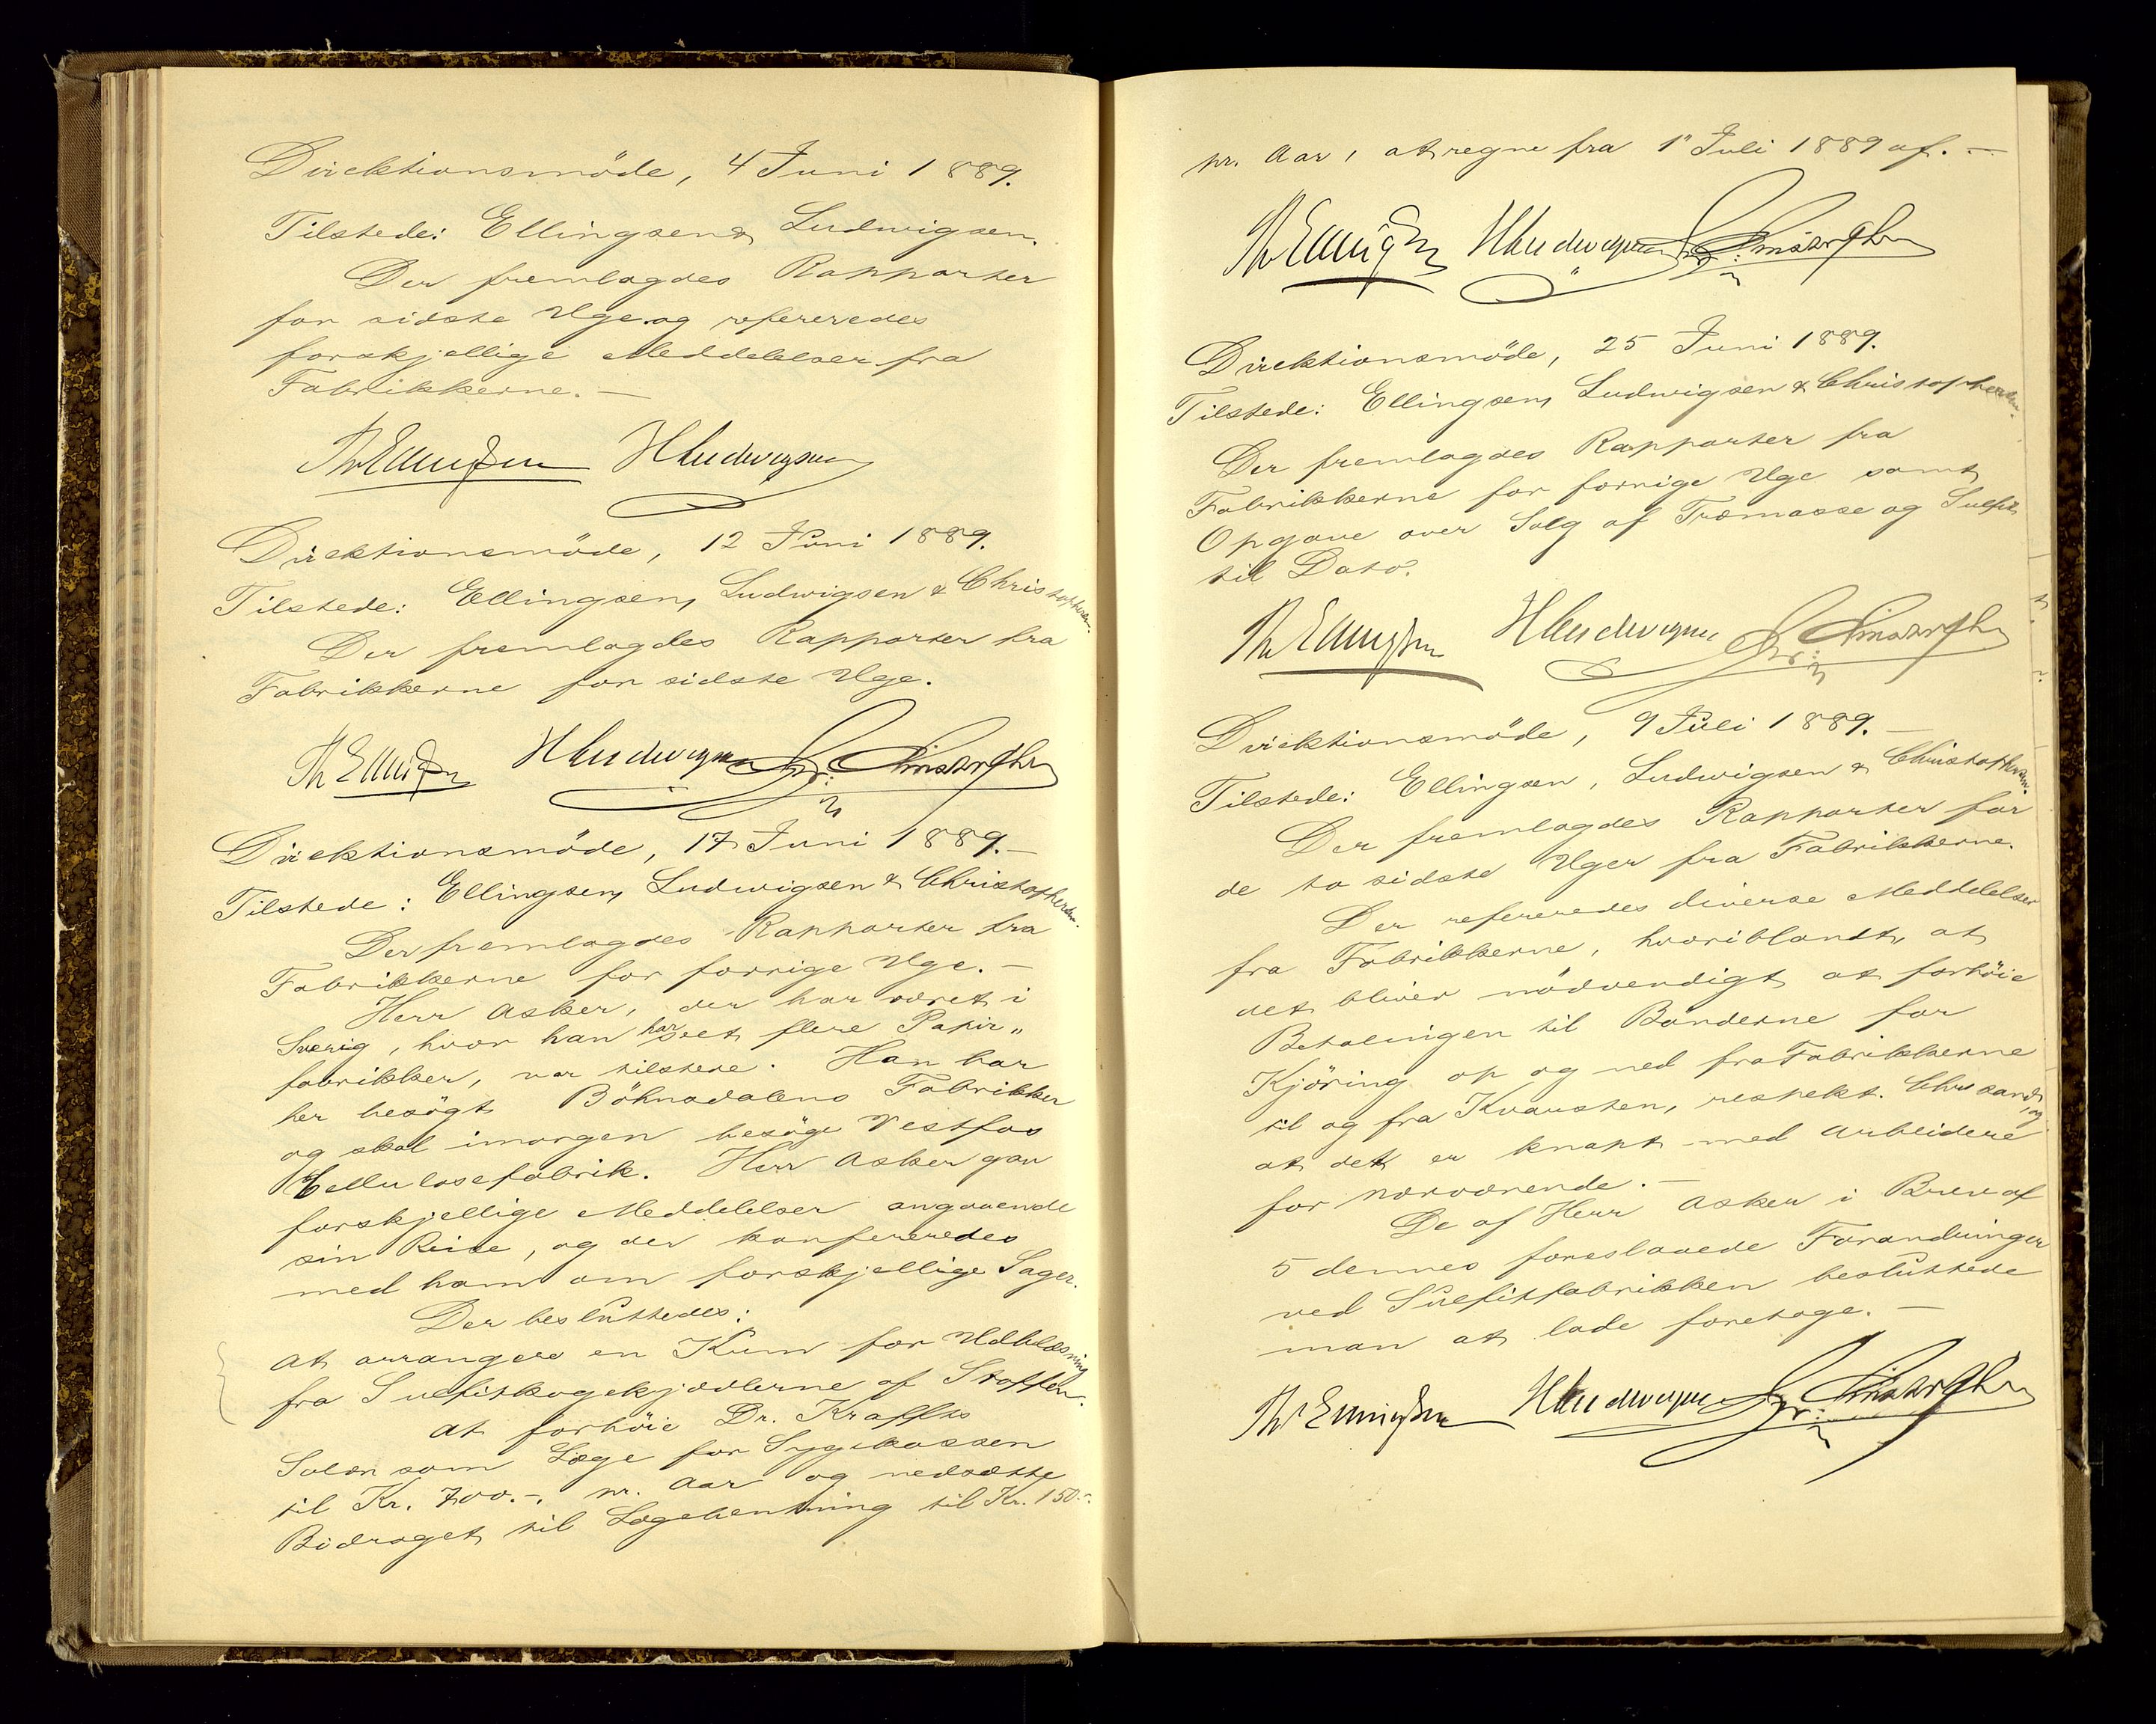 Direktionsmöde, 4 Juni 1889.
Tilstede: Ellingsen & Ludwigsen.
Der fremlagdes Rapporter
for sidste Uge og refereredes
forskjellige Meddelelser fra
Fabrikkerne. —
Th Ellingsen HLudwigsen
Direktionsmöde, 12 Juni 1889.
Tilstede: Ellingsen, Ludwigsen & Christophersen.
Der fremlagdes Rapporter fra
Fabrikkerne for sidste Uge.
Th Ellingsen HLudwigsen
Direktionsmöde, 17 Juni 1889. —
Tilstede: Ellingsen, Ludwigsen & Christophersen.
Der fremlagdes Rapporter fra
Fabrikkerne for forrige Uge. —
Herr Asker, der har været i
Sverig, hvor han har seet flere Papir„
fabrikker, var tilstede. Han har
her besögt Böhnsdalens Fabrikker
og skal imorgen besöge Vestfos
Cellulosefabrik. Herr Asker gav
forskjellige Meddelelser angaaende
sin Reise, og der konfereredes
med ham om forskjellige Sager.
Der besluttedes:
at arrangere en Kum for Udblæsning
fra Sulfitkogekjædlerne af Stoffen.
at forhöie Dr. Kraffts
Salær som Læge for Sygekassen
til Kr. 700.-. pr. Aar og nedsætte
Bidraget til Lægehentning til Kr. 150.-.
pr. Aar, at regne fra 1" Juli 1889 af. —
Th Ellingsen HLudwigsen
Direktionsmöde, 25 Juni 1889.
Tilstede: Ellingsen, Ludwigsen & Christophersen.
Der fremlagdes Rapporter fra
Fabrikkerne for forrige Uge samt
Opgave over Salg af Træmasse og Sulfit
til Dato.
Th Ellingsen HLudwigsen
Direktionsmöde, 9 Juli 1889. —
Tilstede: Ellingsen, Ludwigsen & Christophersen.
Der fremlagdes Rapporter for
de to sidste Uger fra Fabrikkerne.
Der refereredes diverse Meddelelser
fra Fabrikkerne, hvoriblandt, at
det bliver nödvendigt at forhöie
Betalingen til Bönderne for
Kjöring op og ned fra Fabrikkerne
til og fra Kvarsten, respekt. Chrssand, og
at det er knapt med Arbeidere
for nærværende. —
De af Herr Asker i Brev af
5 dennes foreslaaede Forandringer
ved Sulfitfabrikken besluttede
man at lade foretage. —
Th Ellingsen HLudwigsen